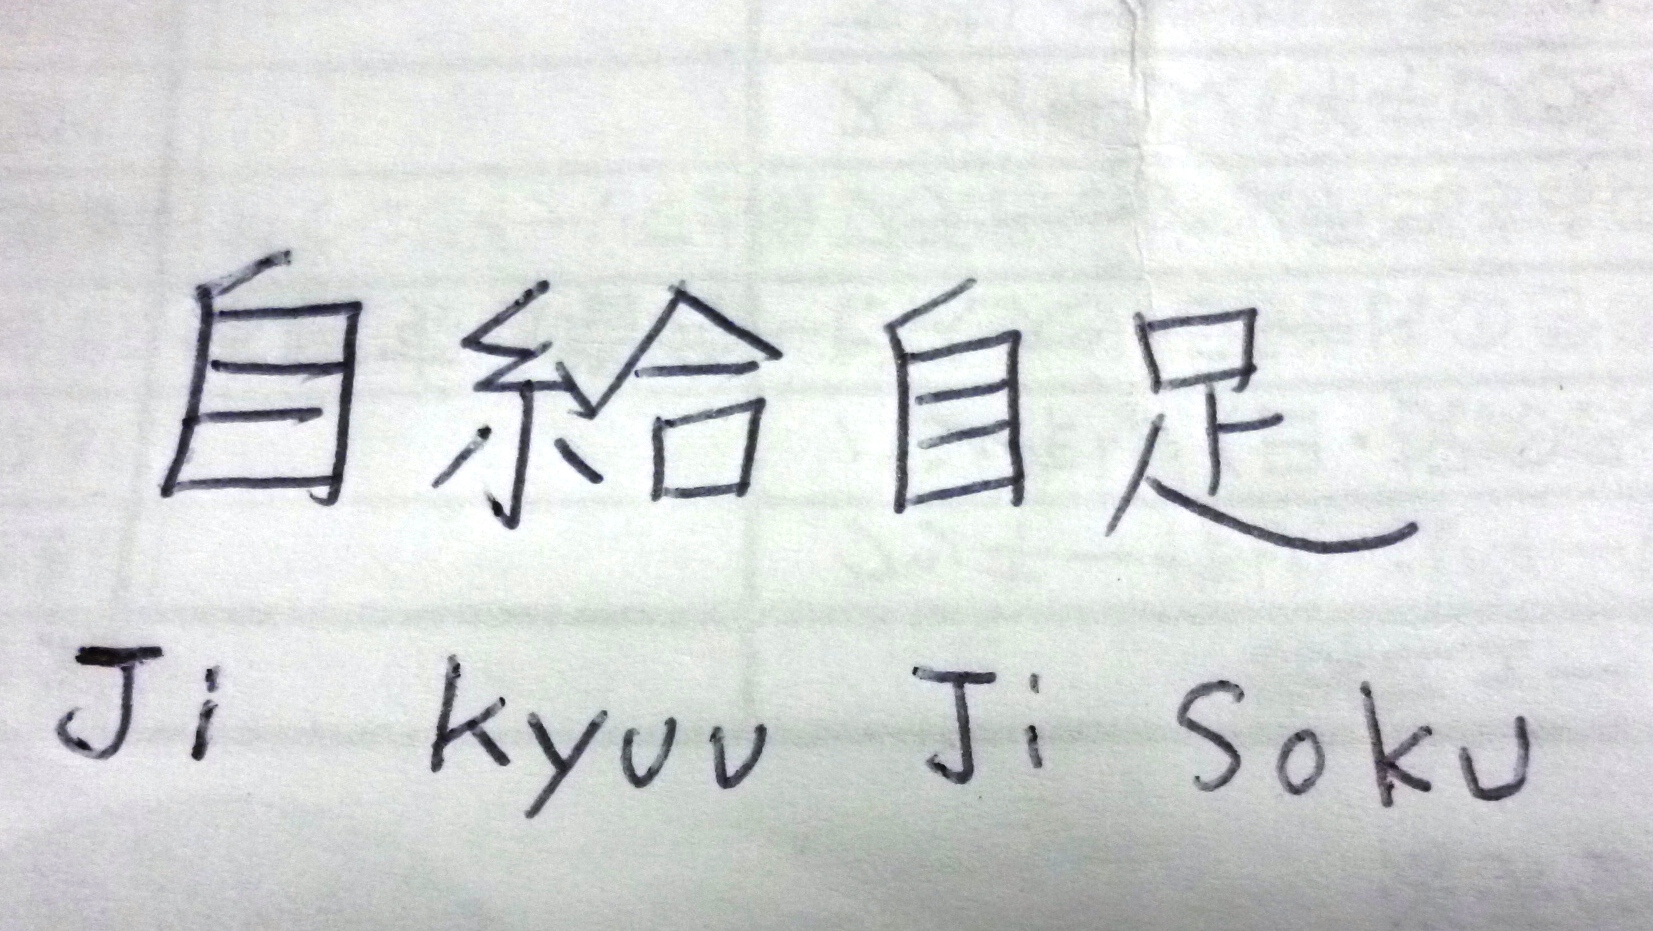 自給自足
Ji kyuu Ji Soku